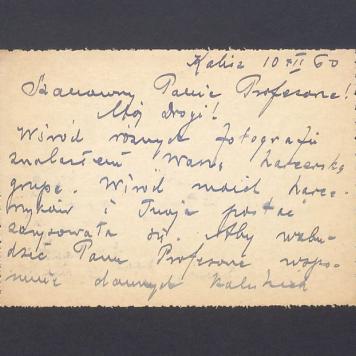 Kalisz 10 XII 60
Szanowny Panie Profesorze!
Mój Drogi!
Wśród różnych fotografii
znalazłem Waszą harcerską
grupę. Wśród moich harce-
rzyków i Twoja postać
zarysowała się. Aby wzbu-
dzić Panu Profesorowi wspo-
mnie dawnych